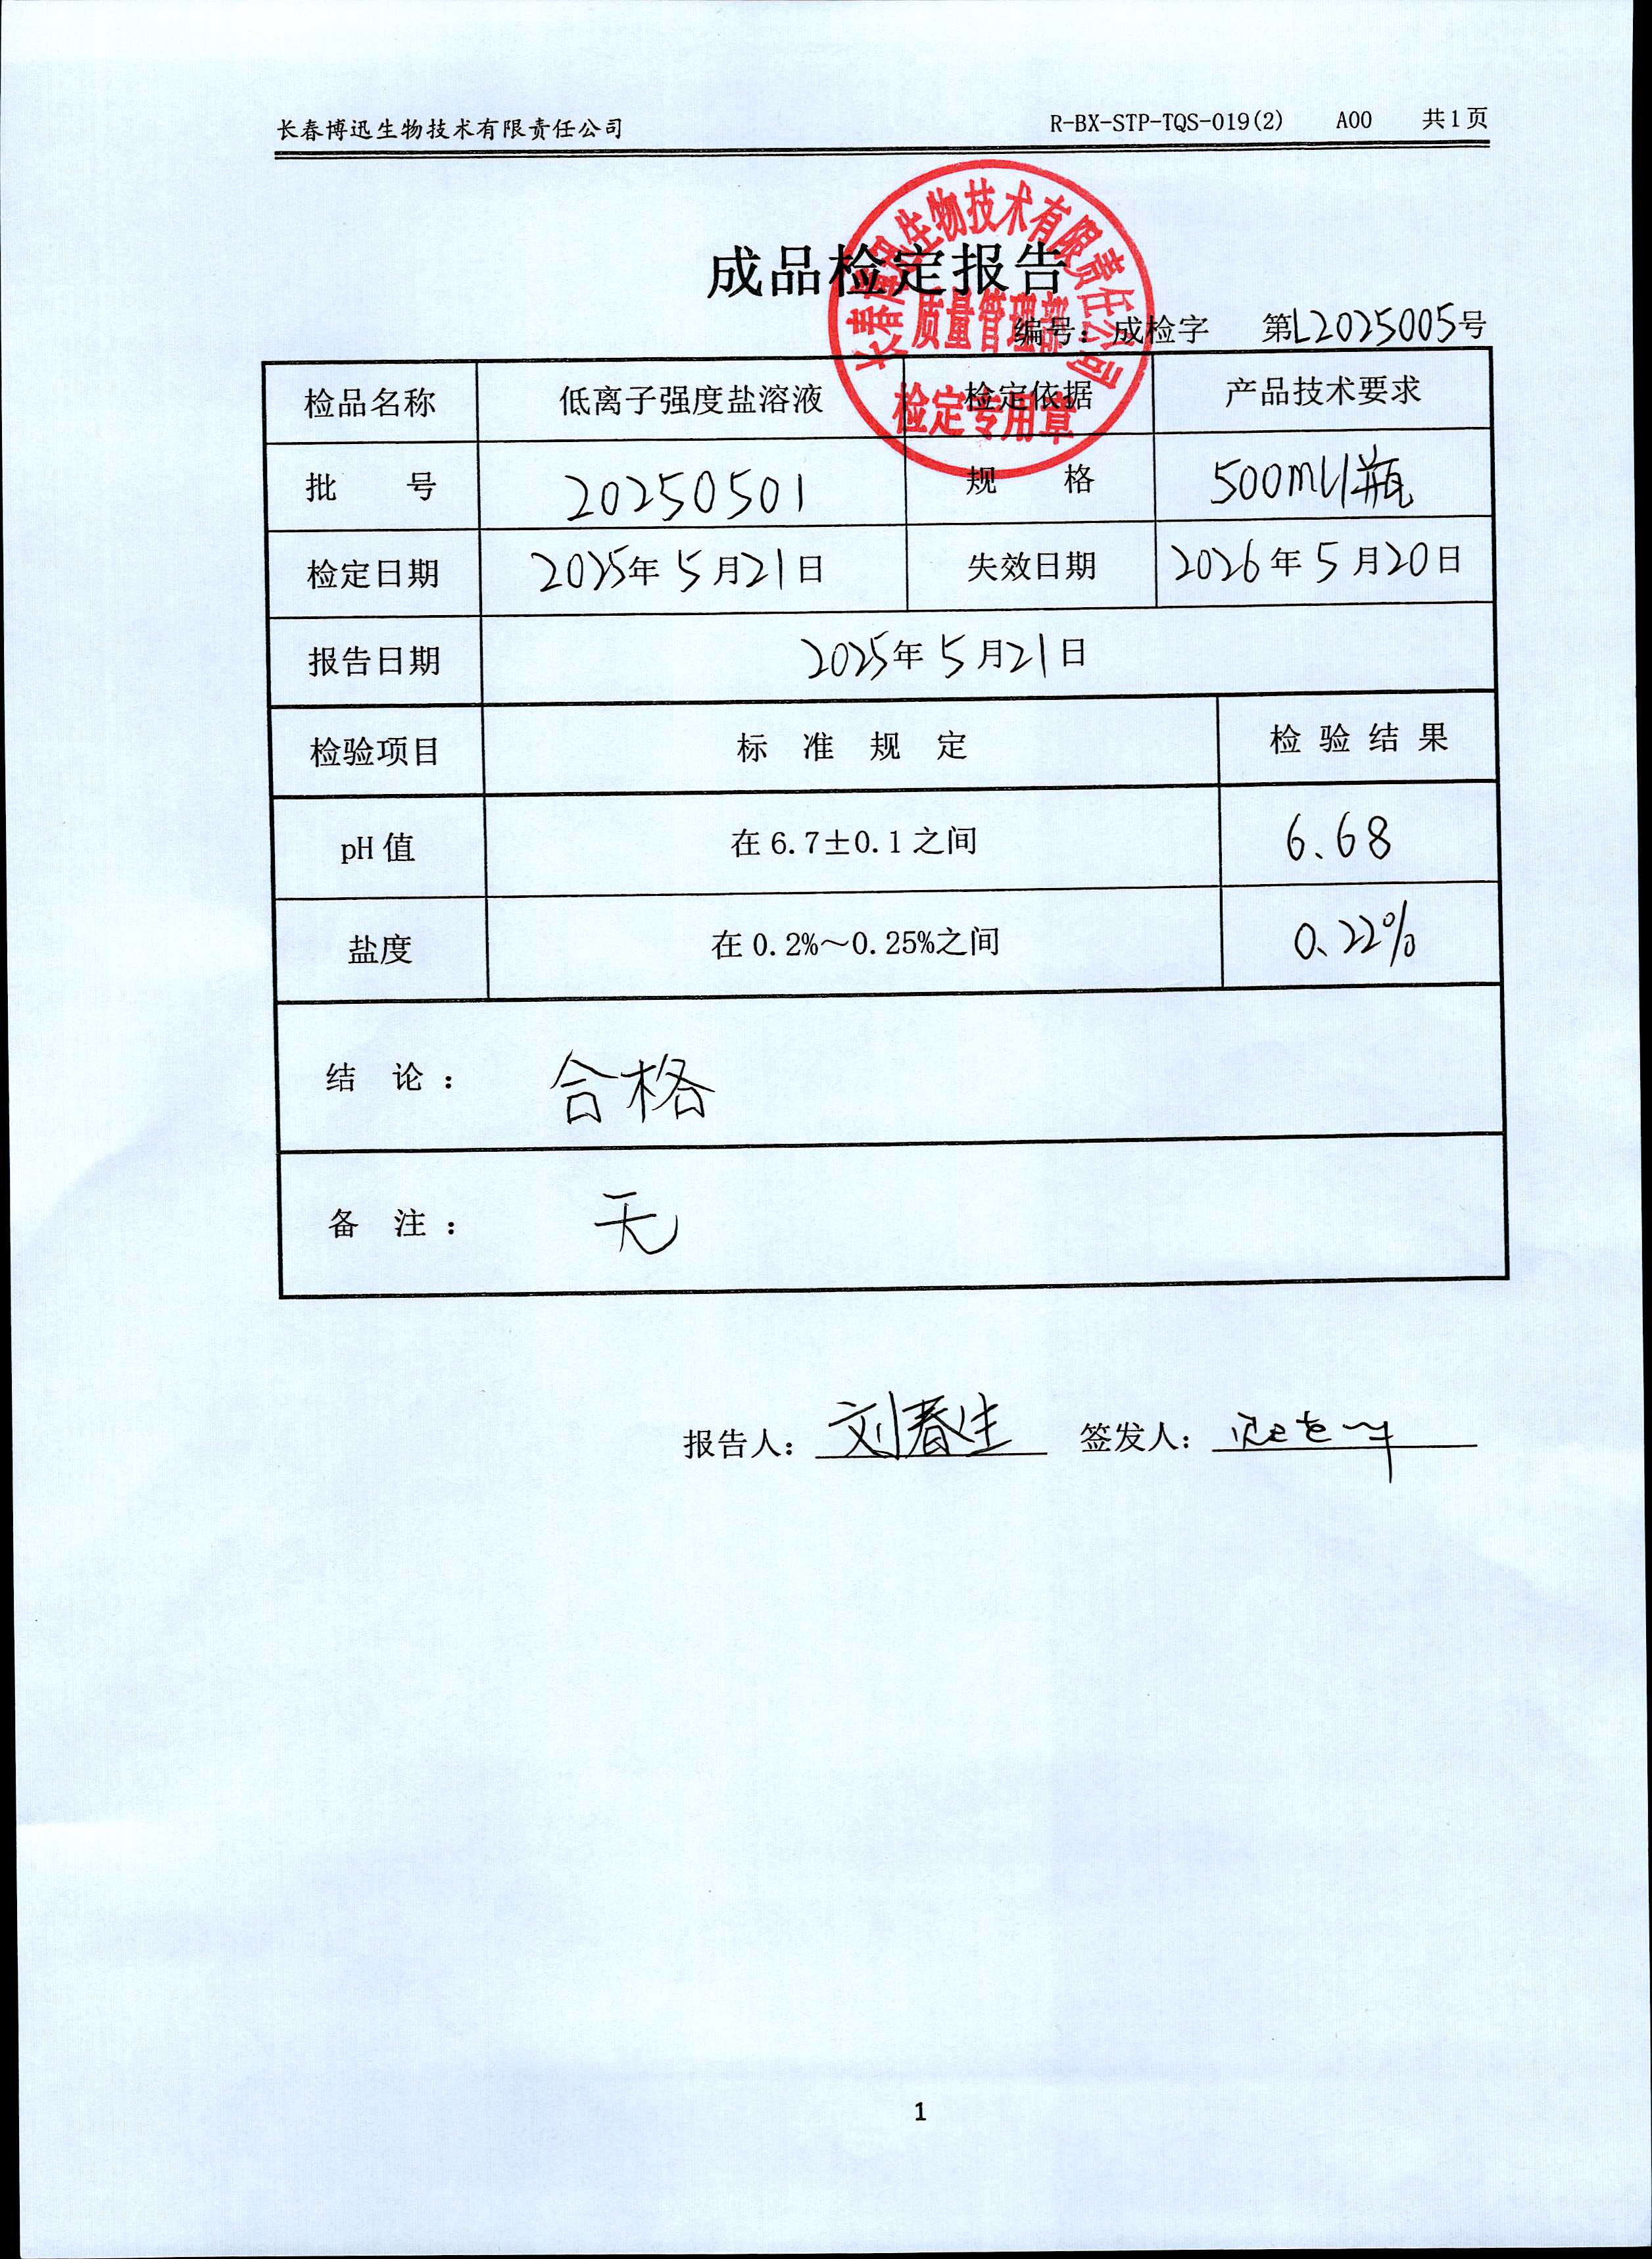 长春博迅生物技术有限责任公司 R-BX-STP-TQS-019(2) A00 共1页
长春博迅生物技术有限责任公司
质量管理部
检定专用章
成品检定报告
编号：成检字 第L2025005号
检品名称 低离子强度盐溶液 检定依据 产品技术要求
批 号 20250501 规 格 500ml/瓶
检定日期 2025年5月21日 失效日期 2026年5月20日
报告日期 2025年5月21日
检验项目 标 准 规 定 检 验 结 果
pH值 在6.7±0.1之间 6.68
盐度 在0.2%～0.25%之间 0.22%
结 论： 合格
备 注： 无
报告人： 刘春生 签发人：
1